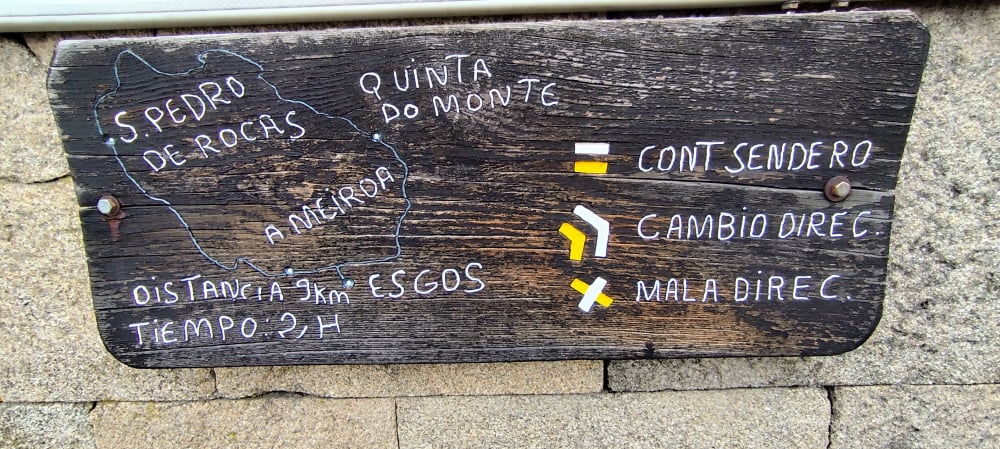 S. PEDRO
DE ROCAS
QUINTA
DO MONTE
A MEIROA
ESGOS
DISTANCIA 9km
TIEMPO: 2, H
CONT SENDERO
CAMBIO DIREC.
MALA DIREC.